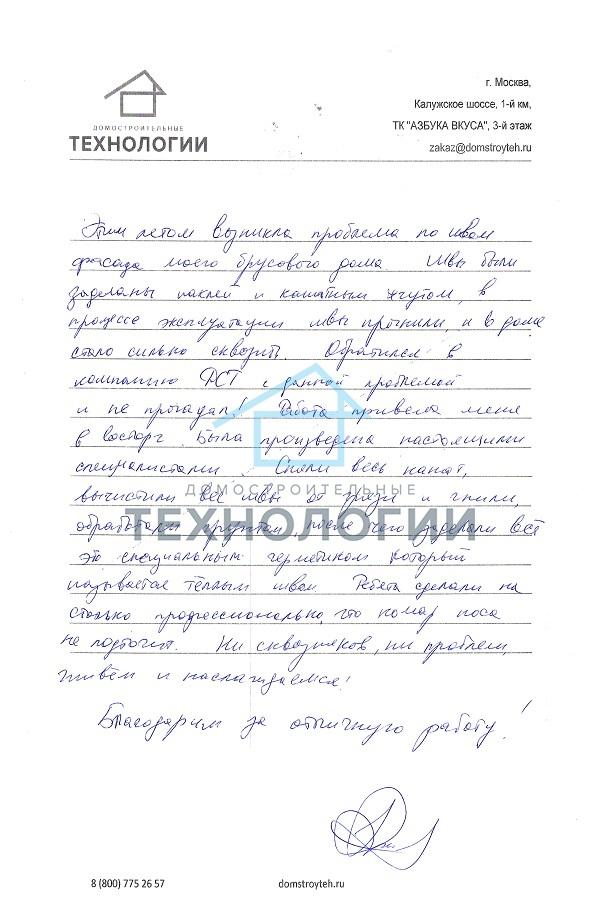 ДОМОСТРОИТЕЛЬНЫЕ
ТЕХНОЛОГИИ
г. Москва,
Калужское шоссе, 1-й км,
ТК "АЗБУКА ВКУСА", 3-й этаж
zakaz@domstroyteh.ru
Этим летом возникла проблема по швам
фасада моего брусового дома. Швы были
заделаны паклей и канатным жгутом, в
процессе эксплуатации швы прогнили, и в доме
стало сильно сквозить. Обратился в
компанию ДСТ с данной проблемой
и не прогадал! Работа привела меня
в восторг. Была произведена настоящими
специалистами. Сняли весь канат,
вычистили все швы от грязи и гнили,
обработали грунтом, после чего заделали всё
это специальным герметиком который
называется тёплым швом. Ребята сделали на
столько профессионально, что комар носа
не подточит. Ни сквозняков, ни проблем,
живём и наслаждаемся!
Благодарим за отличную работу!
ДОМОСТРОИТЕЛЬНЫЕ
ТЕХНОЛОГИИ
8 (800) 775 26 57
domstroyteh.ru